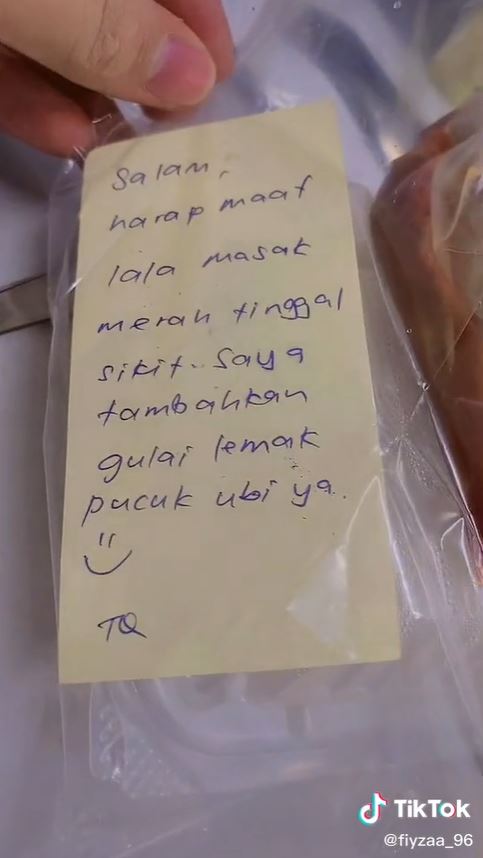 Salam,
harap maaf
lala masak
merah tinggal
sikit.. Saya
tambahkan
gulai lemak
pucuk ubi ya..
TQ
TikTok
@fiyzaa_96